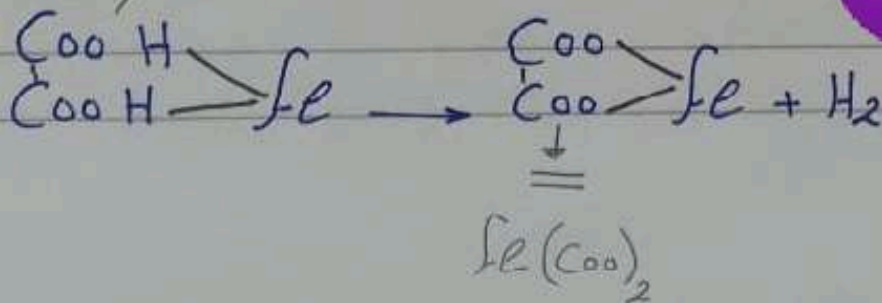 COO H
COO H Fe → COO COO Fe + H2
Fe(COO)2